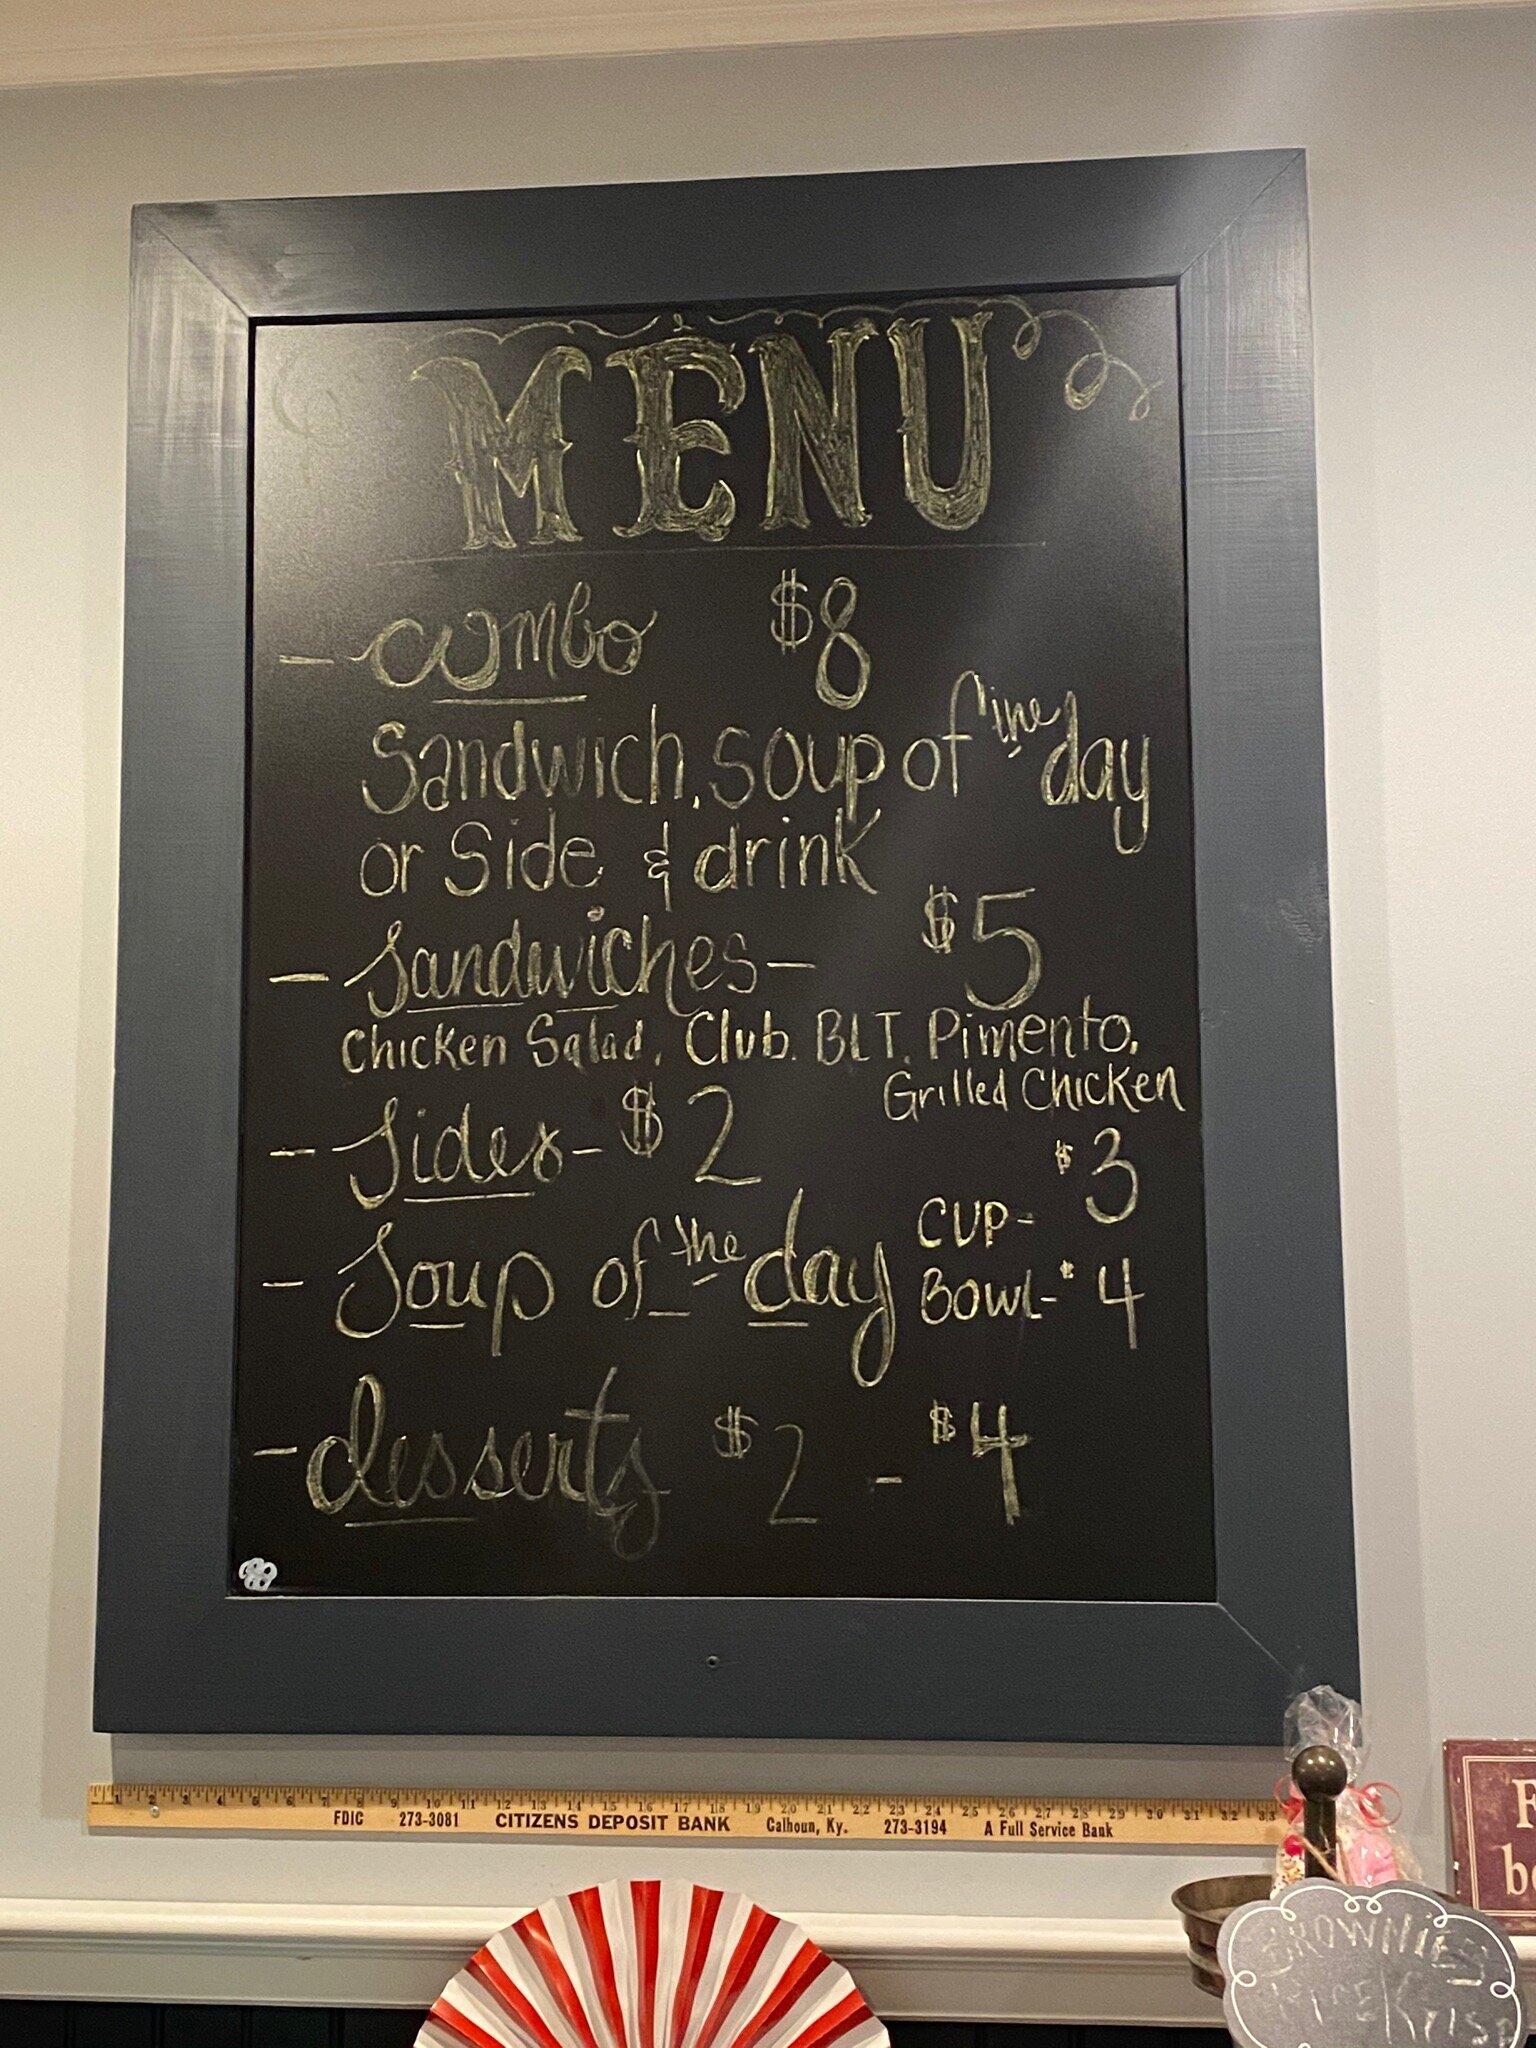 MENU
- combo $8
Sandwich, soup of the day
or Side & drink
- Sandwiches - $5
Chicken Salad, Club, BLT, Pimento,
Grilled Chicken
- Sides - $2
- Soup of the day CUP - $3
BOWL - $4
- desserts $2 - $4
1 2 3 4 5 6 7 8 9 10 11 12 13 14 15 16 17 18 19 20 21 22 23 24 25 26 27 28 29 30 31 32 33
FDIC 273-3081 CITIZENS DEPOSIT BANK Calhoun, Ky. 273-3194 A Full Service Bank
BROWNIES